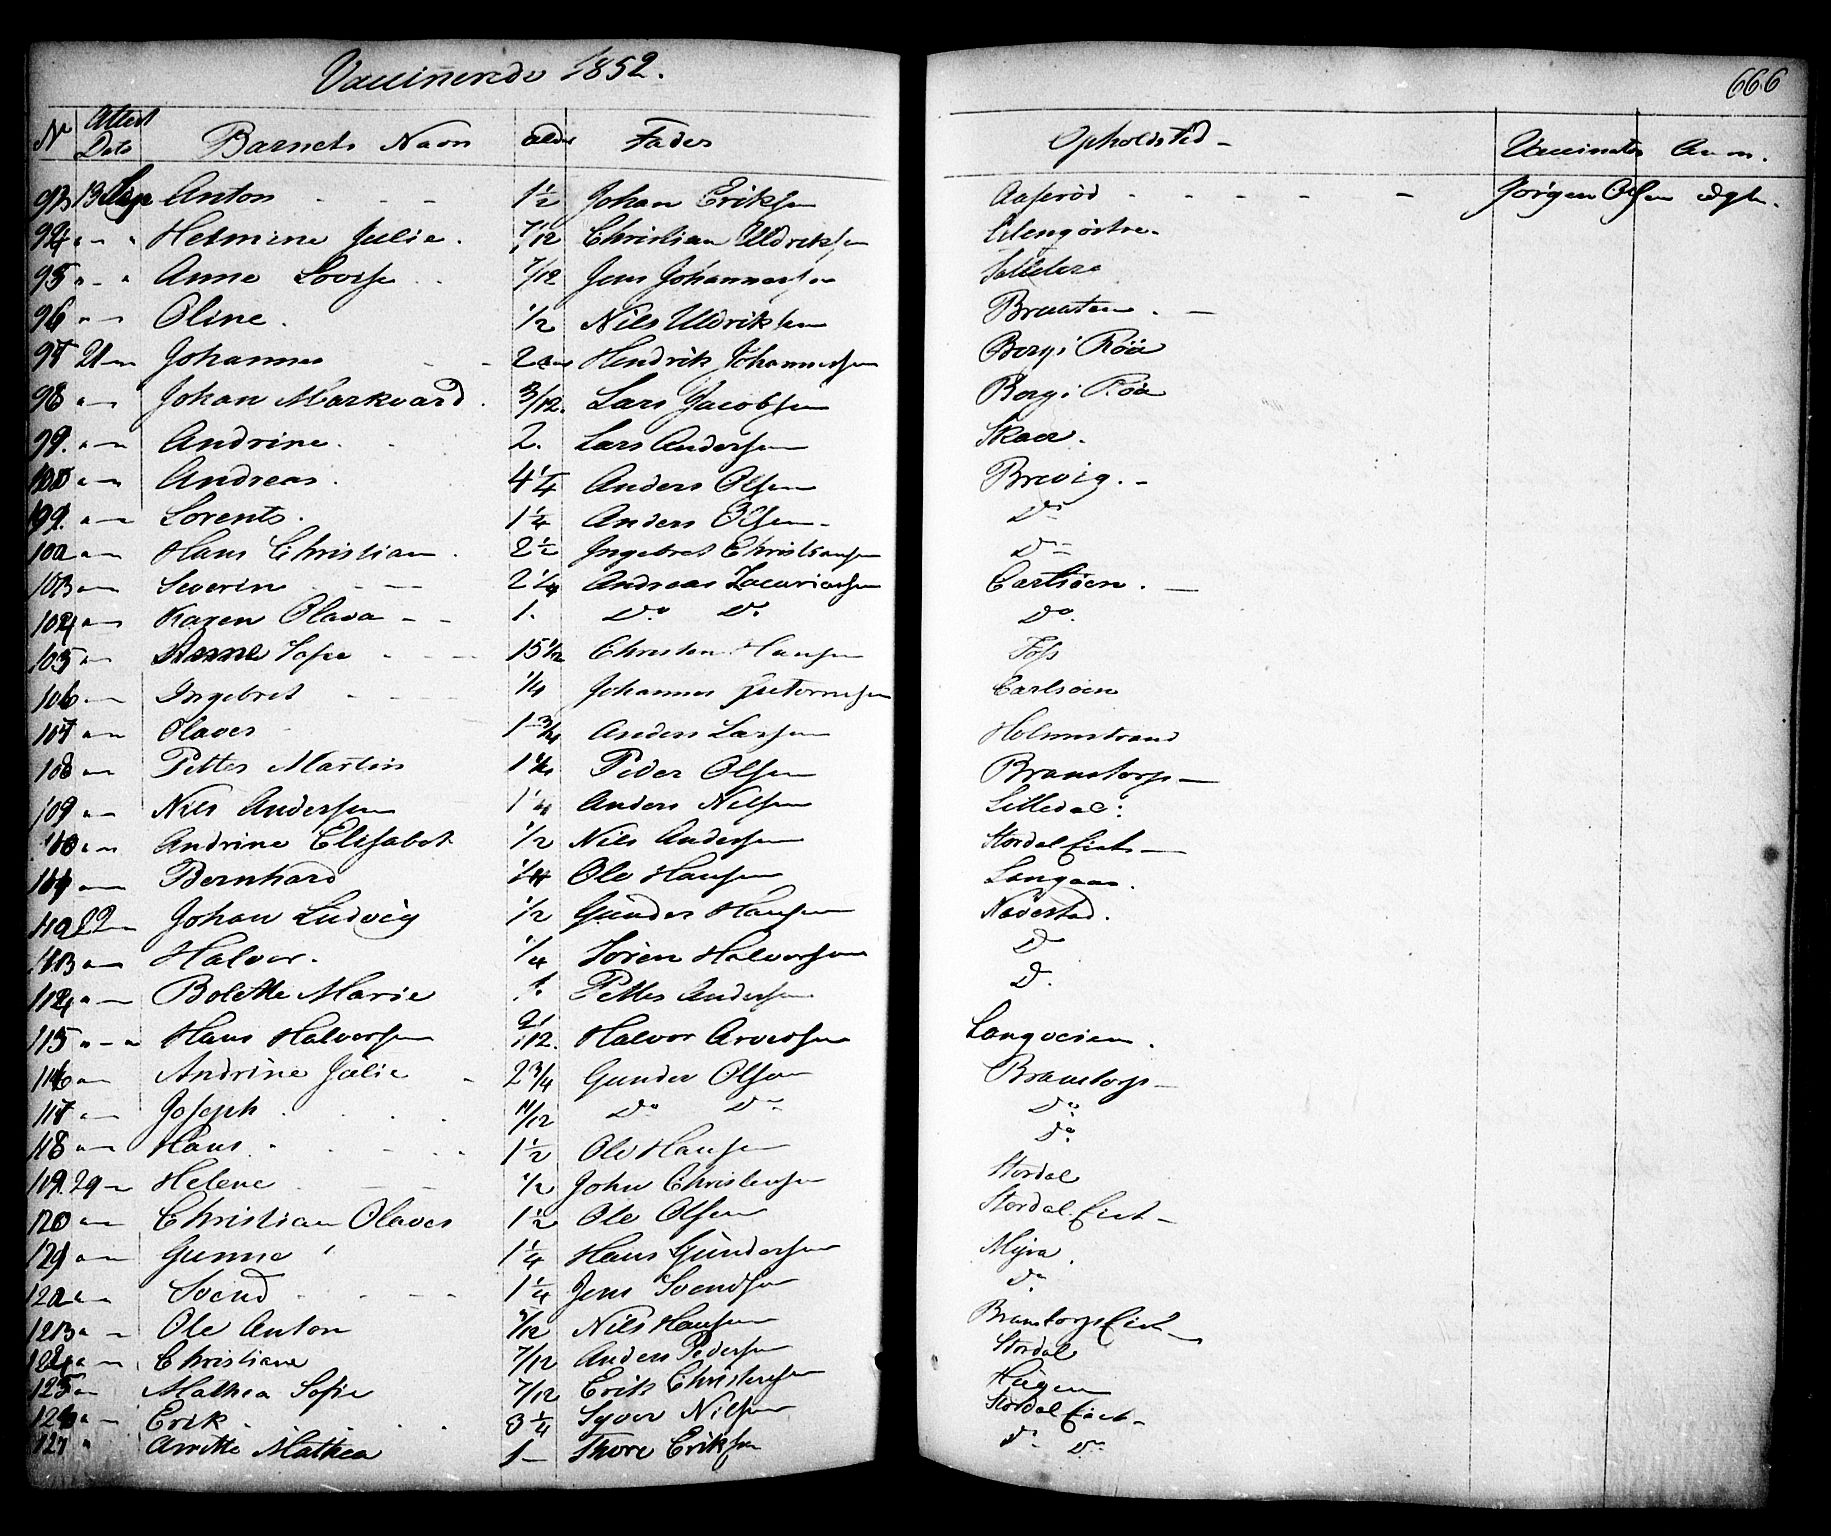 Vaccinerede 1852.
666
Nr Attest Dato Barnets Navn alder Fader Opholdsted - Vaccinatør Anm.
93 13 Anton 1½ Johan Eriksen Aaserød Jørgen Olsen
94 " - " Helmine Julie. 7/12 Christian Uldriksen
95 " - " Anne Lovise 7/12 Jens Johannesen
96 " - Oline. 1/2 Nils Uldriksen Braaten. -
97 21 - Johannes 2 Hendrik Johannessen Berg i Röd
98 " - Johan Markvard. 3/12. Lars Jacobsen Berg i Röd
99. " - Andrine. 2. Lars Andersen Skaar.
100 " - Andreas. 4¼ Anders Olsen Brevig. -
" - Lorents. 1¼ Anders Olsen - Do
102 " - Hans Christian. 2½ Ingebret Christiansen Do
103 " - Severin 2¼ Andreas Zacariassen Carlsöen. -
104 " - Karen Olava - - 1. Do Do Do.
105 " - Anne Sofie 15 Christen Hansen Foss
106 " - Ingebret 1/4 Johannes Carlsöen
107 " - Olaves 1 3/4 Anders Larsen Holmestrand
108 " - Petter Martin 1¼ Peder Olsen Bramstorp -
109 " - Nils Andersen 1¼ Anders Nilsen Litledal:
110 " - Andrine Elisabet 1/2 Nils Andersen Stordal Eiet -
" - Bernhard 1/4 Ole Hansen Langaas.
112 22 - Johan Ludvig 1/2 Gunder Hansen Navestad.
113 " - Halvor. 1/4 Sören Halvorsen Do
114 " - Bolette Marie 1. Petter Andersen D.
115 " - " Hans Halvorsen 9/12. Halvor Arvesen
116 " - Andrine Julie - 2¾ Gunder Olsen Bramstorp -
117 " - Joseph 11/12 Do Do Do
118 " - Hans 1½ Ole Hansen Do
119. 29 - Helene 1/2 John Christensen Stordal
120 " - Christian Olaves 1½ Ole Olsen Stordal Eiet -
121 " - Gunne 1¼ Hans Gundersen Myra.
122 " - Svend 1¼ Jens Svendsen Do
123 " - Ole Anton /12 Nils Hansen Bramstorp Eiet -
124 " - Christiane 7/12 Anders Pedersen Stordal
125 " - Mathea Sofie 7/12 Erik Christensen Haugen
126 " - Erik. 3¼ Syver Nilsen Stordal Eiet -
127 " Anette Mathea 1 - Thore Eriksen Do Do